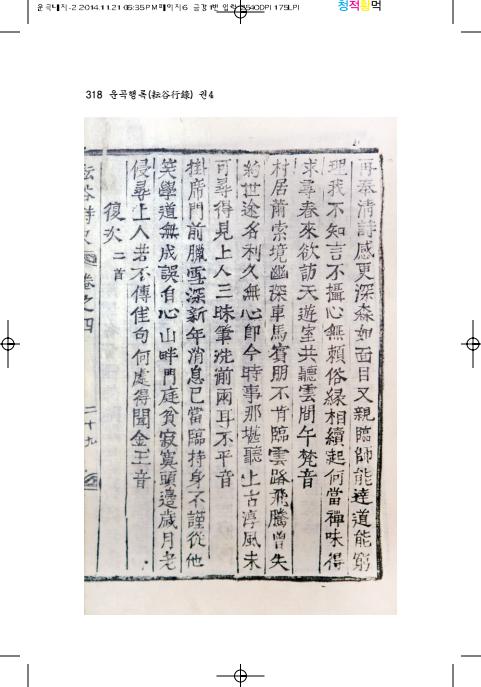 운곡내지-2.2014.11.21 05:35 PM 페이지6
청적황먹
318 운곡행록(耘谷行錄) 권4
再奉淸詩感更深森如面目又親臨師能達道能窮
理我不知言不攝心無賴俗緣相續起何當禪味得
求尋春來欲訪天遊室共聽雲間午梵音
村居蕭索境幽深車馬賓朋不肯臨雲路飛騰曾失
約世途名利久無心卽今時事那堪聽上古淳風未
可尋得見上人三昧筆洗前兩耳不平音
掛席門前臘雪深新年消息已當臨持身不謹從他
笑學道無成誤自心山畔門庭貧寂寞頭邊歲月老
侵尋上人若不傳佳句何處得聞金玉音
復次 二首
耘谷詩史 卷之四 二十九